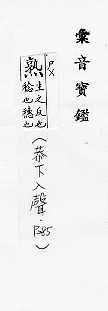 彙音寶鑑
熟 生之反也
稔也穗也
(恭下入聲.P385)